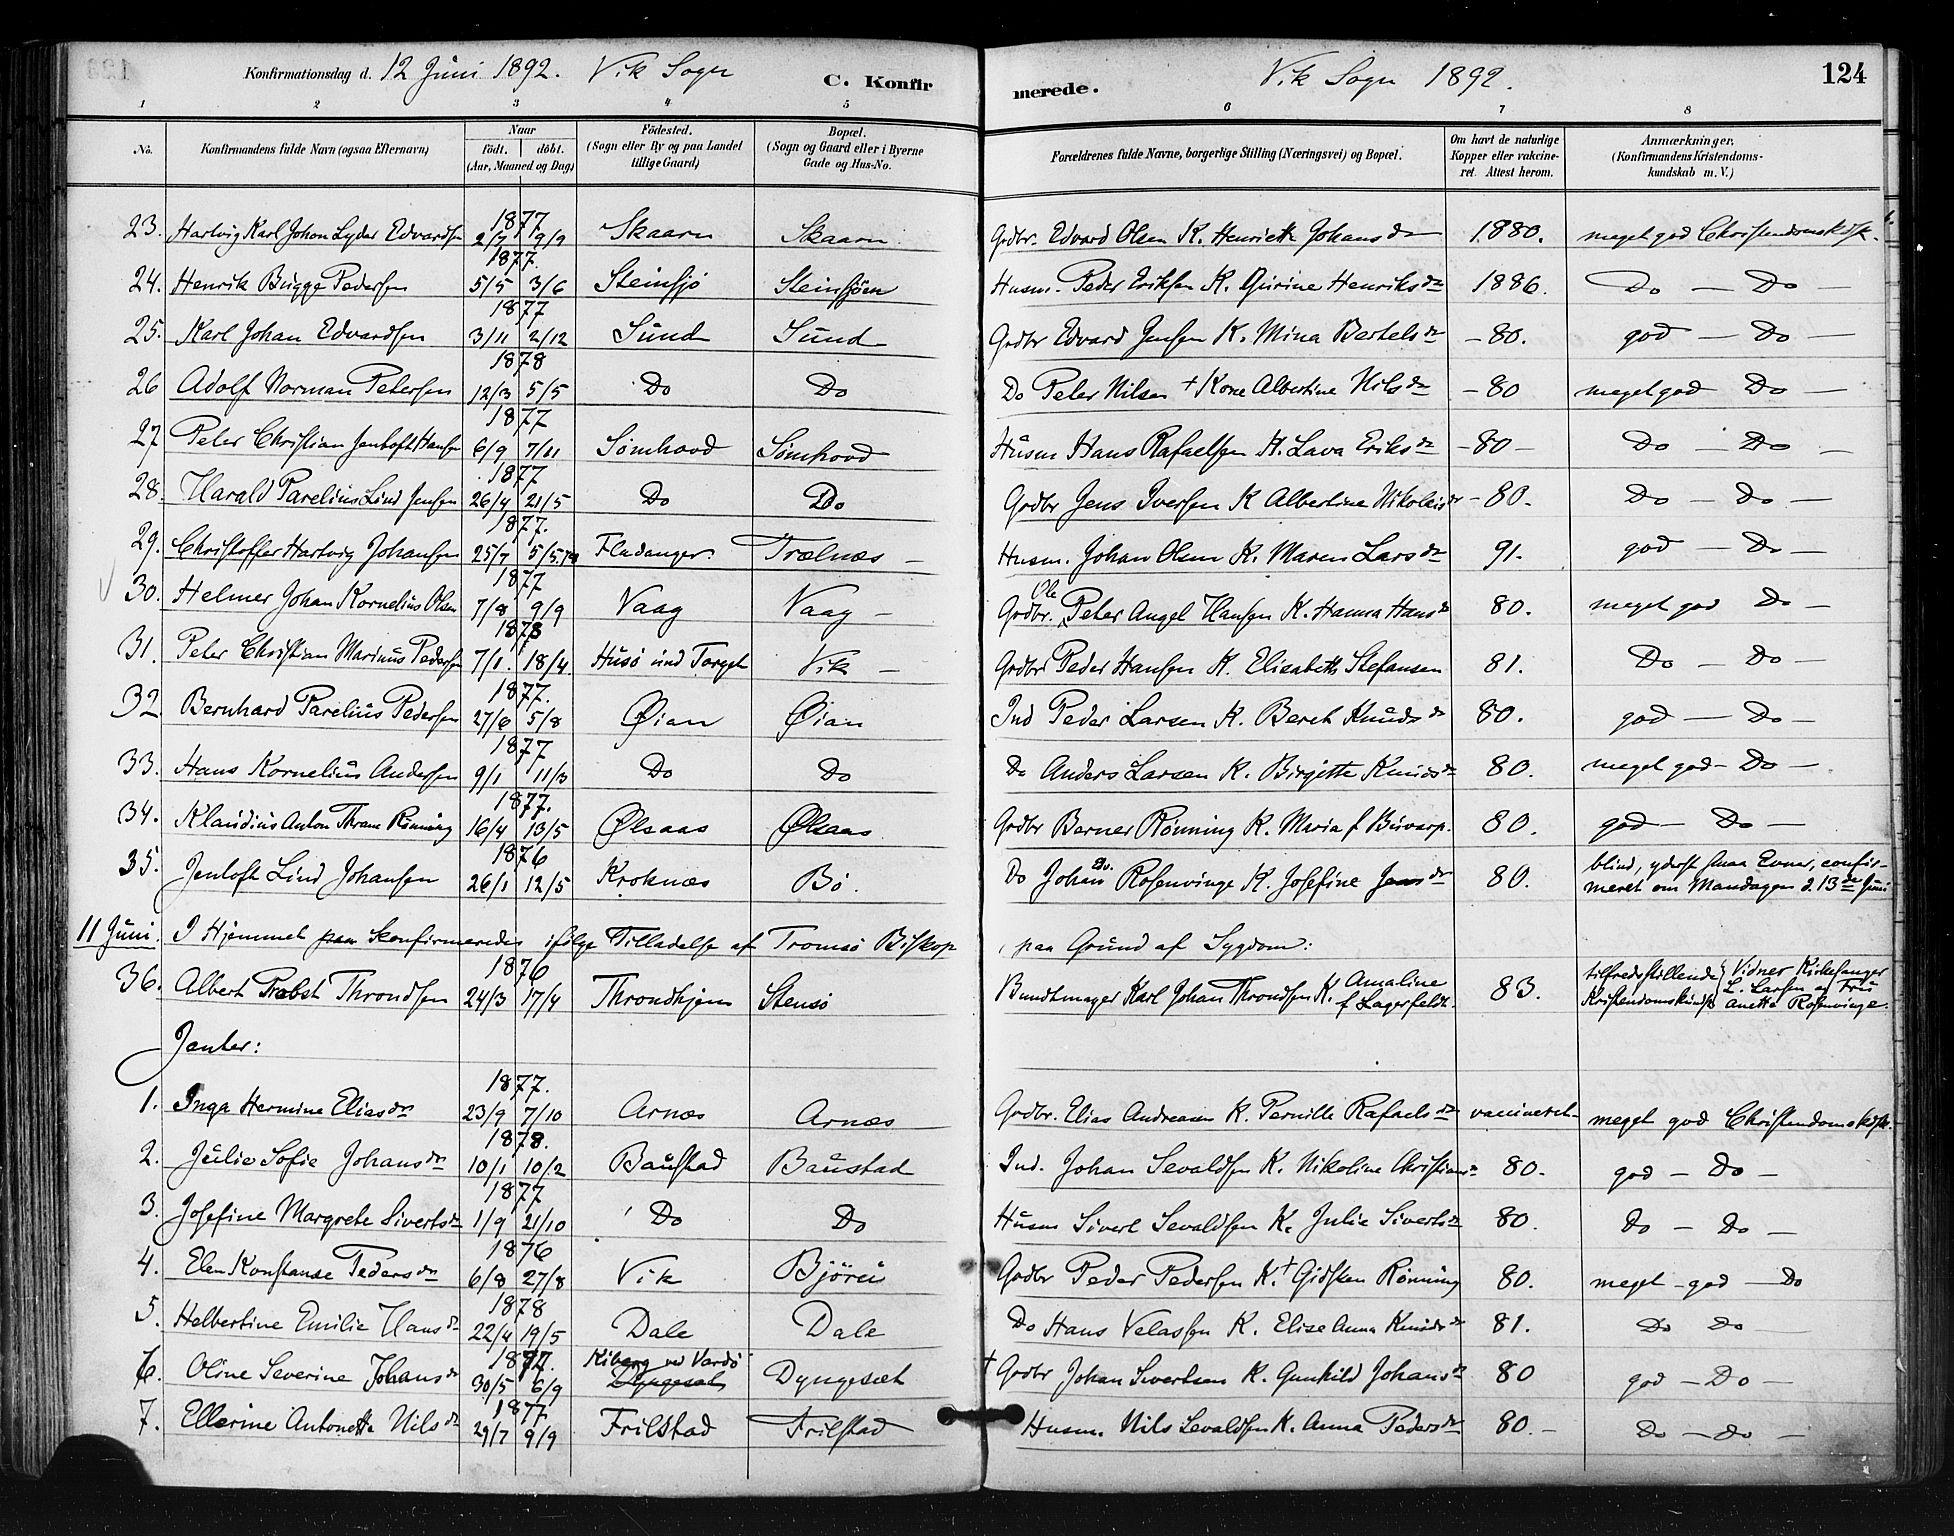 Konfirmationsdag d. 12 Juni 1892. Vik Sogn C. Konfirmerede. Vik Sogn 1892. 124
1 2 3 4 5 6 7 8
No. Konfirmandens fulde Navn (ogsaa Efternavn) Naar født. døbt. (Aar, Maaned og Dag) Fødested. (Sogn eller By og paa Landet tillige Gaard) Bopæl. (Sogn og Gaard eller i Byerne Gade og Hus-No. Forældrenes fulde Navne, borgerlige Stilling (Næringsvei) og Bopæl. Om havt de naturlige Kopper eller vakcineret. Attest herom. Anmærkninger. (Konfirmandens Kristendomskundskab m. V.)
1877
23. Hartvig Karl Johan Lyder Edvardsen 2/7 9/9 Skaarn Skaarn Grdbr. Edvard Olsen K. Henriette Johansdn 1880. meget god Christendomskdsk.
1877.
24. Henrik Bugge Pedersen 5/5 3/6 Steinsjø Steinsjøen Husm. Peder Eriksen K. Henriksdn 1886. Do — Do —
1877
25. Karl Johan Edvardsen 3/11 2/12 Sund Sund Grdbr Edvard Jensen K. Mina Bertelsdn - 80. god — Do —
1878
26 Adolf Norman Petersen 12/3 5/5 Do Do Do Peter Nilsen + Kone Albertine Nilsdn - 80 meget god Do —
1877
27 Peter Christian Jentoft Hansen 6/9 7/11 Sømhovd Sømhovd Husm Hans Rafaelsen K. Lava Eriksdn - 80 - Do — Do —
1877
28. Harald Parelius Lind Jensen 26/4 21/5 Do Do Grdbr Jens Iversen K Albertine Nikolaisdr - 80. Do — Do —
1877.
29. Christoffer Hartvig Johansen 25/7 5/5. Fladanger. Trælnæs — Husm. Johan Olsen K. Maren Larsdn 91. god — Do —
1877
30. Helmer Johan Kornelius Olsen 7/8 9/9 Vaag Vaag — Grdbr. Ole Peter Angel Hansen K. Hanna Hansdn 80. meget god Do —
1878
31. Peter Christian Marinus Pedersen 7/1. 18/4. Husø und Torget Vik — Grdbr Peder Hansen K. Elisabeth Stefansen 81. Do — Do —
1877.
32. Bernhard Parelius Pedersen 27/6 5/8 Øian Øian Ind Peder Larsen K. Beret Knudsdn 80. god — Do —
1877
33. Hans Kornelius Andersen 9/1 11/3 Do Do Do Anders Larsen K. Birgitte Knudsdn 80. meget god - Do —
1877.
34. Klaudius Anton Thrane Rønning 16/4 13/5 Ølsaas Ølsaas Grdbr Berner Rønning K. Maria f Busvarp. 80. god — Do —
1876
35. Jentoft Lind Johansen 26/1 12/5 Kroknæs Bø. Do Johan Rosenvinge K. Josefine Jensdn 80. blind, yderst smaa Evner, confirmeret om Mandagen d. 13de Juni
11 Juni. I Hjemmet paa konfirmeredes ifølge Tilladelse af Tromsø Biskop paa Grund af Sygdom:
1876
36. Albert Probst Throndsen 24/3 17/4 Throndhjem Stensø Bundtmager Karl Johan Throndsen K. Amaline f Lagerfeldt. 83. tilfredsstillende Kristendomskundsk Vidner Kirkesanger L. Larsen og Fru Anette Rosenvinge.
Jenter:
1877.
1. Inga Hermine Eliasdn 23/9 7/10 Arnæs Arnæs Grdbr. Elias Andreasen K. Pernille Rafaelsdn vaccineret - meget god Christendomskdsk.
1878.
2. Julie Sofie Johansdn 10/1 10/2 Baustad Baustad Ind. Johan Sevaldsen K. Nikoline Christiansdn 80. god — Do —
1877
3. Josefine Margrete Sivertsdn 1/9 21/10 Do Do Husm Sivert Sevaldsen K. Julie Sivertsdn 80. Do — Do —
1876
4. Elen Konstanse Pedersdn 6/8 27/8 Vik Bjøru Grdbr Peder Pedersen K.+ Gidsken Rønning 80. meget - god — Do
1878
5. Helbertine Emilie Hansdn 22/4 19/5 Dale Dale Do Hans Velassen K. Elise Anna Knudsdn 81. Do Do —
1877.
6. Oline Severine Johansdn 30/5 6/9 Kiberg ved Vardø Dyngesæt Dyngesæt + Grdbr Johan Sivertsen K. Gunhild Johansdn 80 god — Do —
1877
7. Ellerine Antonette Nilsdn 29/7 9/9 Frilstad Frilstad Husm. Nils Sevaldsen K. Anna Pedersdn 80. - Do — Do —